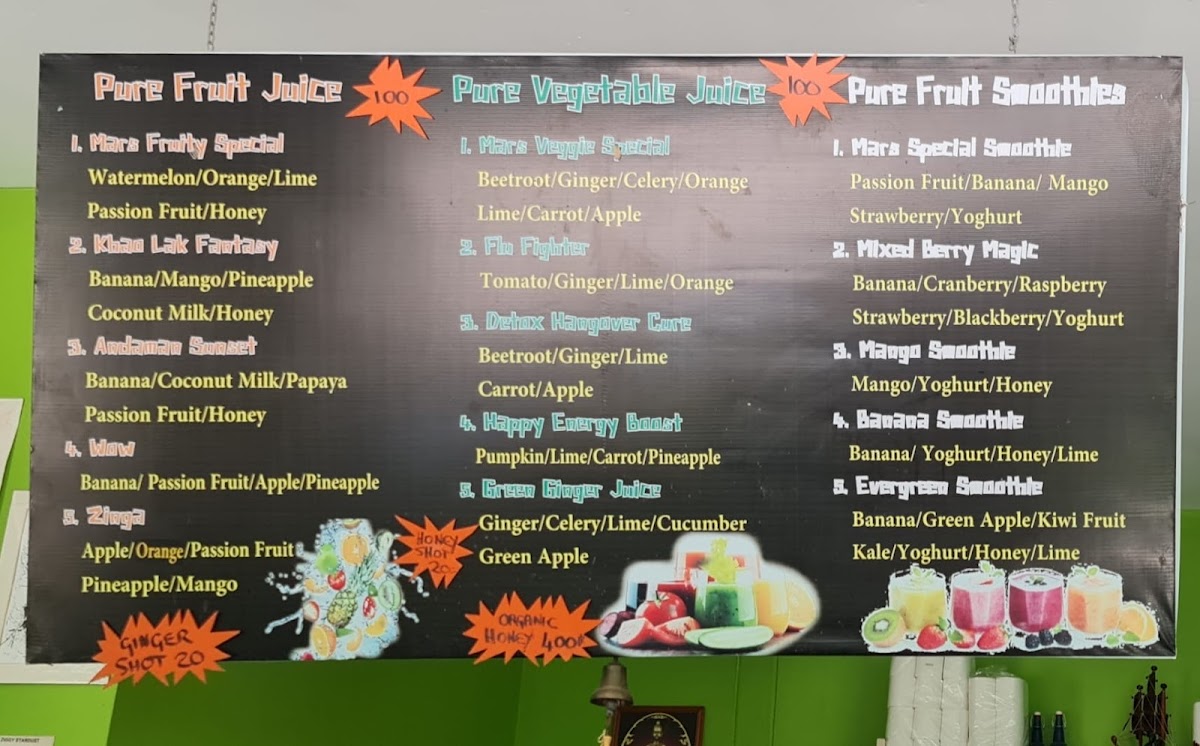 Pure Fruit Juice
100
1. Mars Fruity Special
Watermelon/Orange/Lime
Passion Fruit/Honey
2. Khao Lak Fantasy
Banana/Mango/Pineapple
Coconut Milk/Honey
3. Andaman Sunset
Banana/Coconut Milk/Papaya
Passion Fruit/Honey
4. Wow
Banana/ Passion Fruit/Apple/Pineapple
5. Zinga
Apple/Orange/Passion Fruit
Pineapple/Mango
GINGER
SHOT 20
HONEY
SHOT
20
Pure Vegetable Juice
100
1. Mars Veggie Special
Beetroot/Ginger/Celery/Orange
Lime/Carrot/Apple
2. Flu Fighter
Tomato/Ginger/Lime/Orange
3. Detox Hangover Cure
Beetroot/Ginger/Lime
Carrot/Apple
4. Happy Energy Boost
Pumpkin/Lime/Carrot/Pineapple
5. Green Ginger Juice
Ginger/Celery/Lime/Cucumber
Green Apple
ORGANIC
HONEY 400
Pure Fruit Smoothies
1. Mars Special Smoothie
Passion Fruit/Banana/ Mango
Strawberry/Yoghurt
2. Mixed Berry Magic
Banana/Cranberry/Raspberry
Strawberry/Blackberry/Yoghurt
3. Mango Smoothie
Mango/Yoghurt/Honey
4. Banana Smoothie
Banana/ Yoghurt/Honey/Lime
5. Evergreen Smoothie
Banana/Green Apple/Kiwi Fruit
Kale/Yoghurt/Honey/Lime
ZIGGY STARDUST